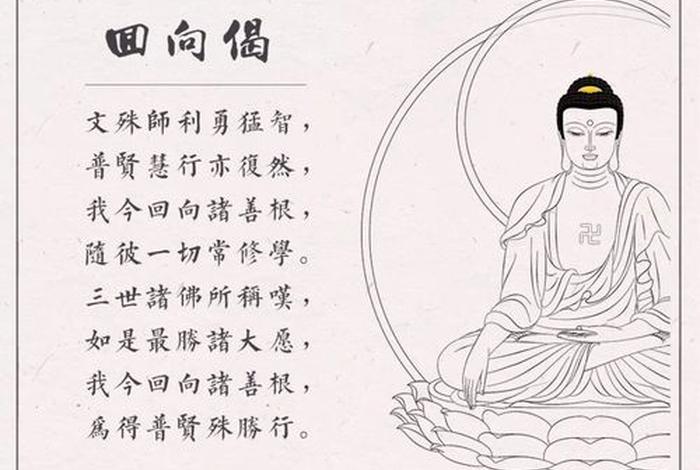 回向偈
文殊師利勇猛智，
普賢慧行亦復然，
我今回向諸善根，
隨彼一切常修學。
三世諸佛所稱嘆，
如是最勝諸大愿，
我今回向諸善根，
爲得普賢殊勝行。